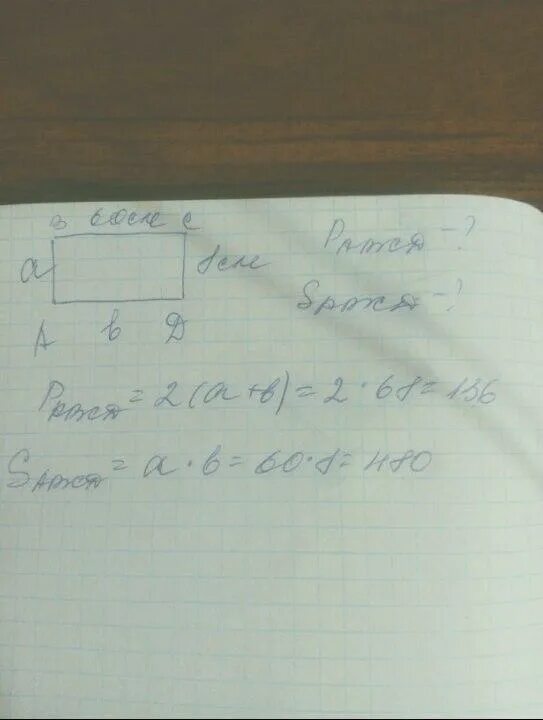 В 60см С
а 8см
А в Д
PАВСД - ?
SАВСД - ?
PАВСД = 2(а+в) = 2·68 = 136
SАВСД = а·в = 60·8 = 480